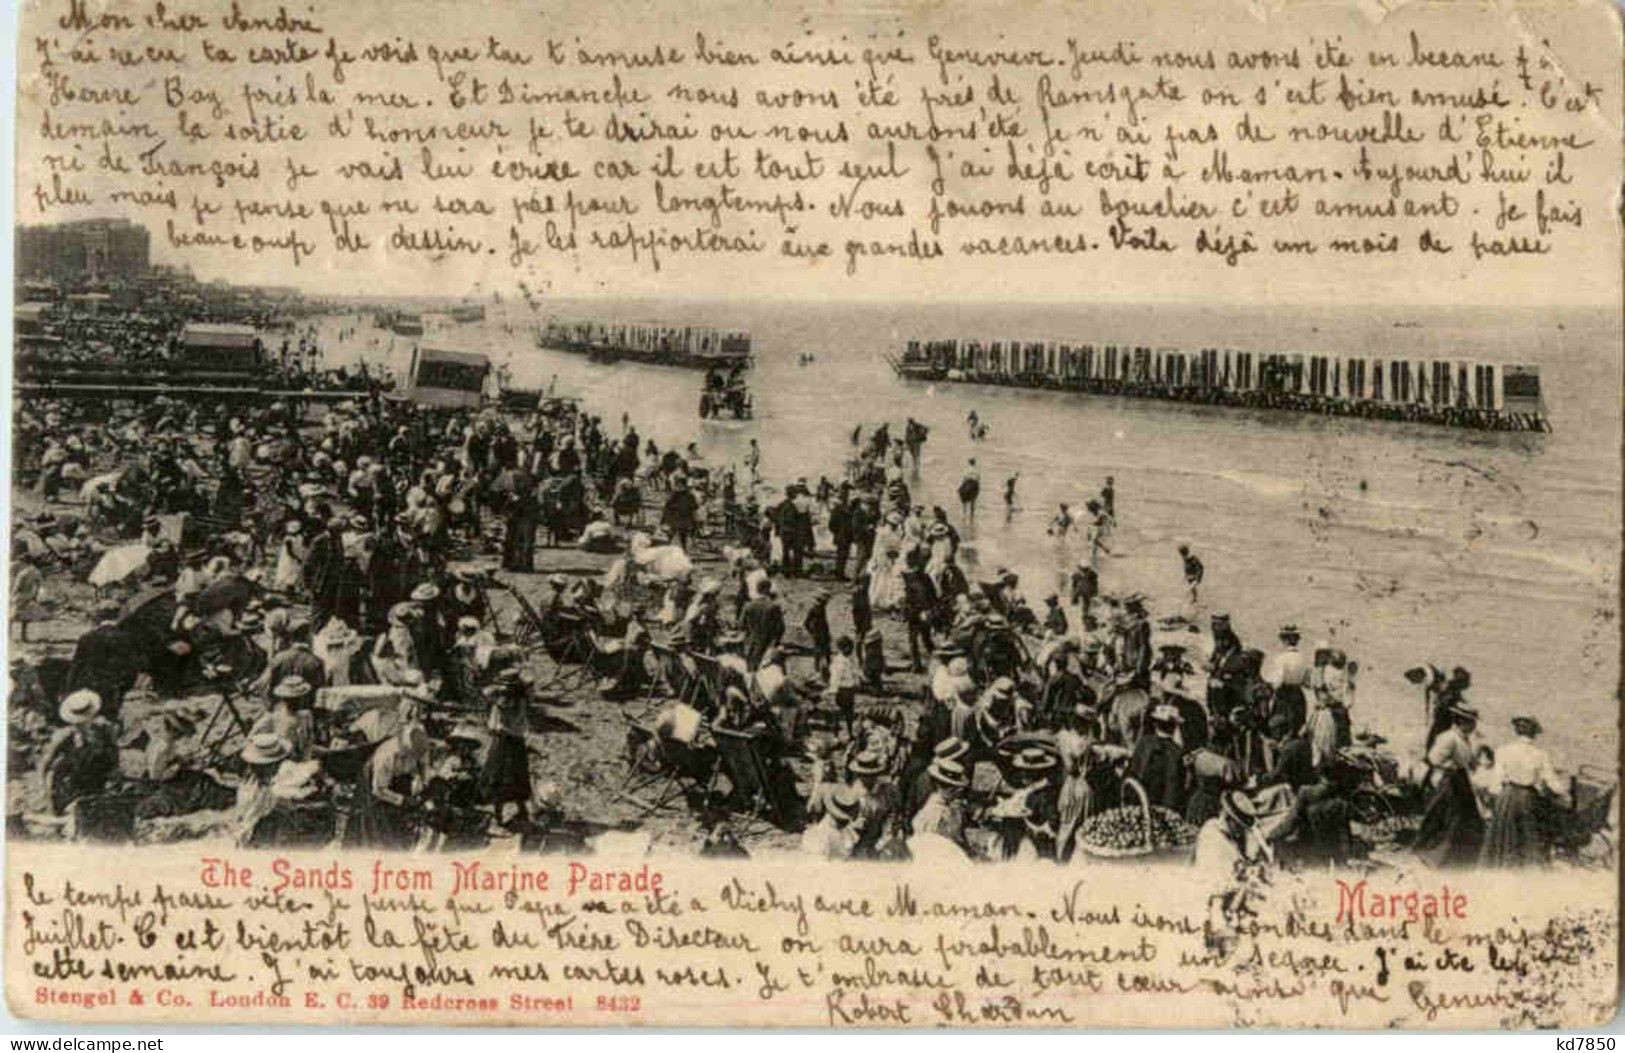 Mon cher André
J'ai recu ta carte je vois que tu t'amuse bien ainsi que Geneviève. Jeudi nous avons été en becane à
Herne Bay près la mer. Et Dimanche nous avons été près de Ramsgate on s'est bien amusé. C'est
demain la sortie d'honneur je te drirai ou nous aurons été je n'ai pas de nouvelle d'Etienne
ni de François je vais lui écrire car il est tout seul J'ai déjà ecrit à Maman. Aujourd'hui il
pleu mais je pense que ne sera pas pour longtemps. Nous jouons au bouclier c'est amusant. Je fais
beaucoup de dessin. Je les rapporterai aux grandes vacances. Voila déjà un mois de passé
The Sands from Marine Parade
Margate
le temps passe vite. Je pense que Papa a été a Vichy avec Maman. Nous irons a Londres dans le mois de
Juillet. C'est bientôt la fête du Frère Directeur on aura probablement un
cette semaine. J'ai toujours mes cartes roses. Je t'embrasse de tout cœur ainsi que Genevieve
Stengel & Co. London E. C. 39 Redcross Street 8432
Robert Chardun
kd7850